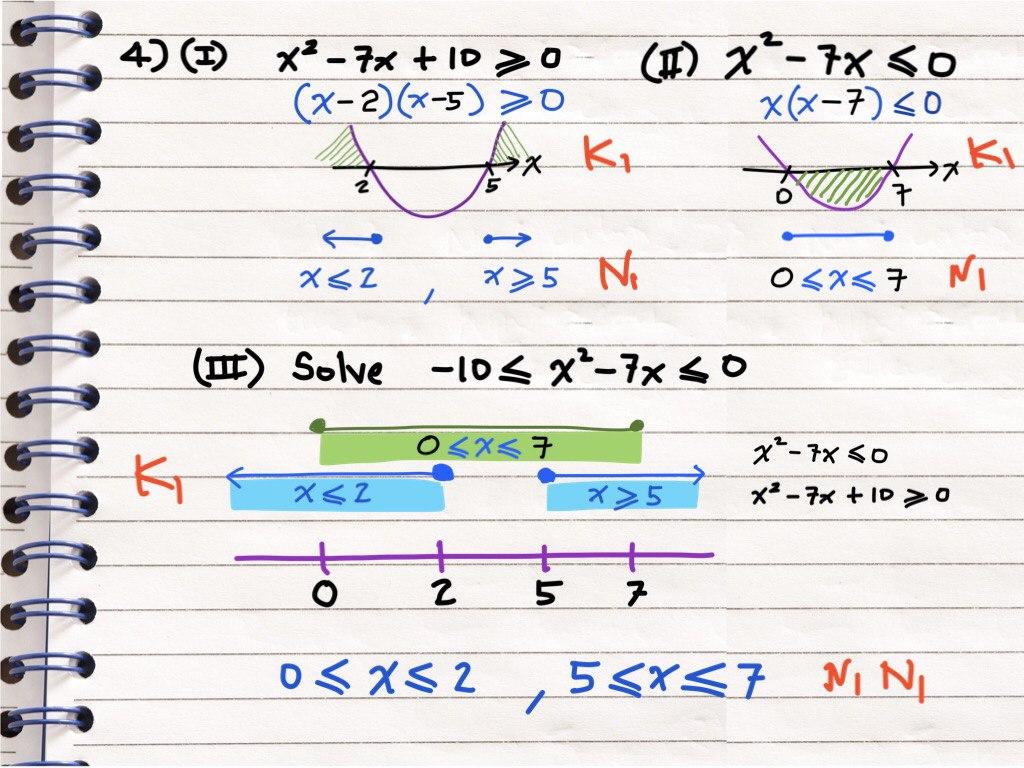 4) (I) x² - 7x + 10 ⩾ 0
(x-2)(x-5) ⩾ 0
2 5 x K1
x ⩽ 2 , x ⩾ 5 N1
(II) x² - 7x ⩽ 0
x(x-7) ⩽ 0
0 7 x K1
0 ⩽ x ⩽ 7 N1
(III) Solve -10 ⩽ x² - 7x ⩽ 0
0 ⩽ x ⩽ 7
K1 x ⩽ 2 x ⩾ 5
x² - 7x ⩽ 0
x² - 7x + 10 ⩾ 0
0 2 5 7
0 ⩽ x ⩽ 2 , 5 ⩽ x ⩽ 7 N1 N1